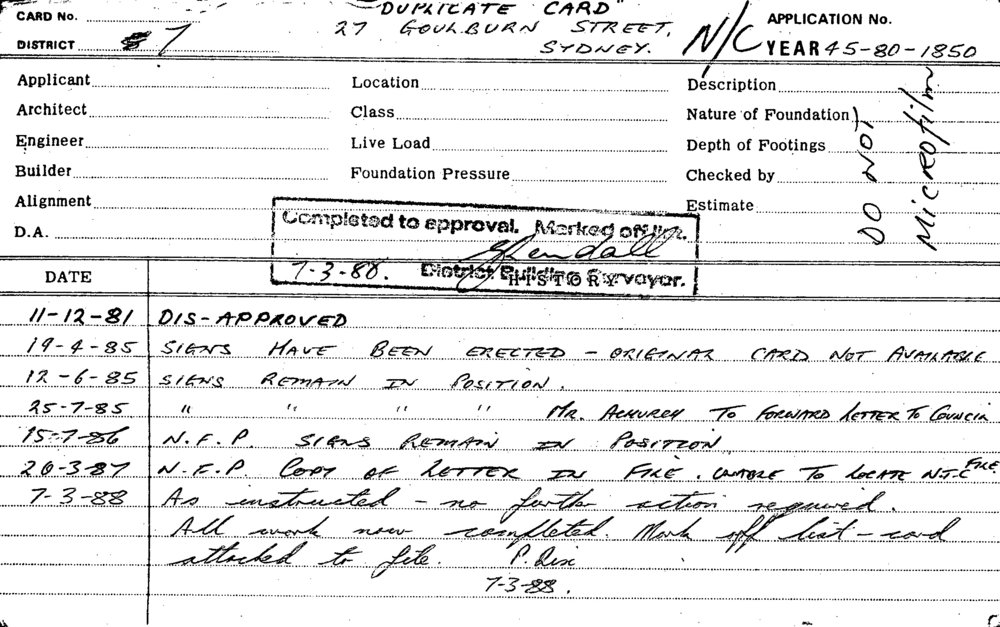 CARD No. "DUPLICATE CARD" APPLICATION No.
DISTRICT 7 27 GOULBURN STREET, SYDNEY. N/C YEAR 45-80-1850
Applicant Location Description
Architect Class Nature of Foundation
Engineer Live Load Depth of Footings
Builder Foundation Pressure Checked by
Alignment Estimate
D.A.
DO NOT
MicRofilm
Completed to approval. Marked off
7-3-88. District Building Surveyor.
DATE HISTORY
11-12-81 DIS-APPROVED
19-4-85 SIGNS HAVE BEEN ERECTED - ORIGINAL CARD NOT AVAILABLE
12-6-85 SIGNS REMAIN IN POSITION.
25-7-85 " " " " MR. TO FORWARD LETTER TO COUNCIL
15-7-86 N.F.P. SIGNS REMAIN IN POSITION
26-3-87 N.F.P. COPY OF LETTER IN FILE. UNABLE TO LOCATE FILE
7-3-88 As instructed - no further action required.
All work now completed. Mark off list - card
attached to file. P. Dix
7-3-88.